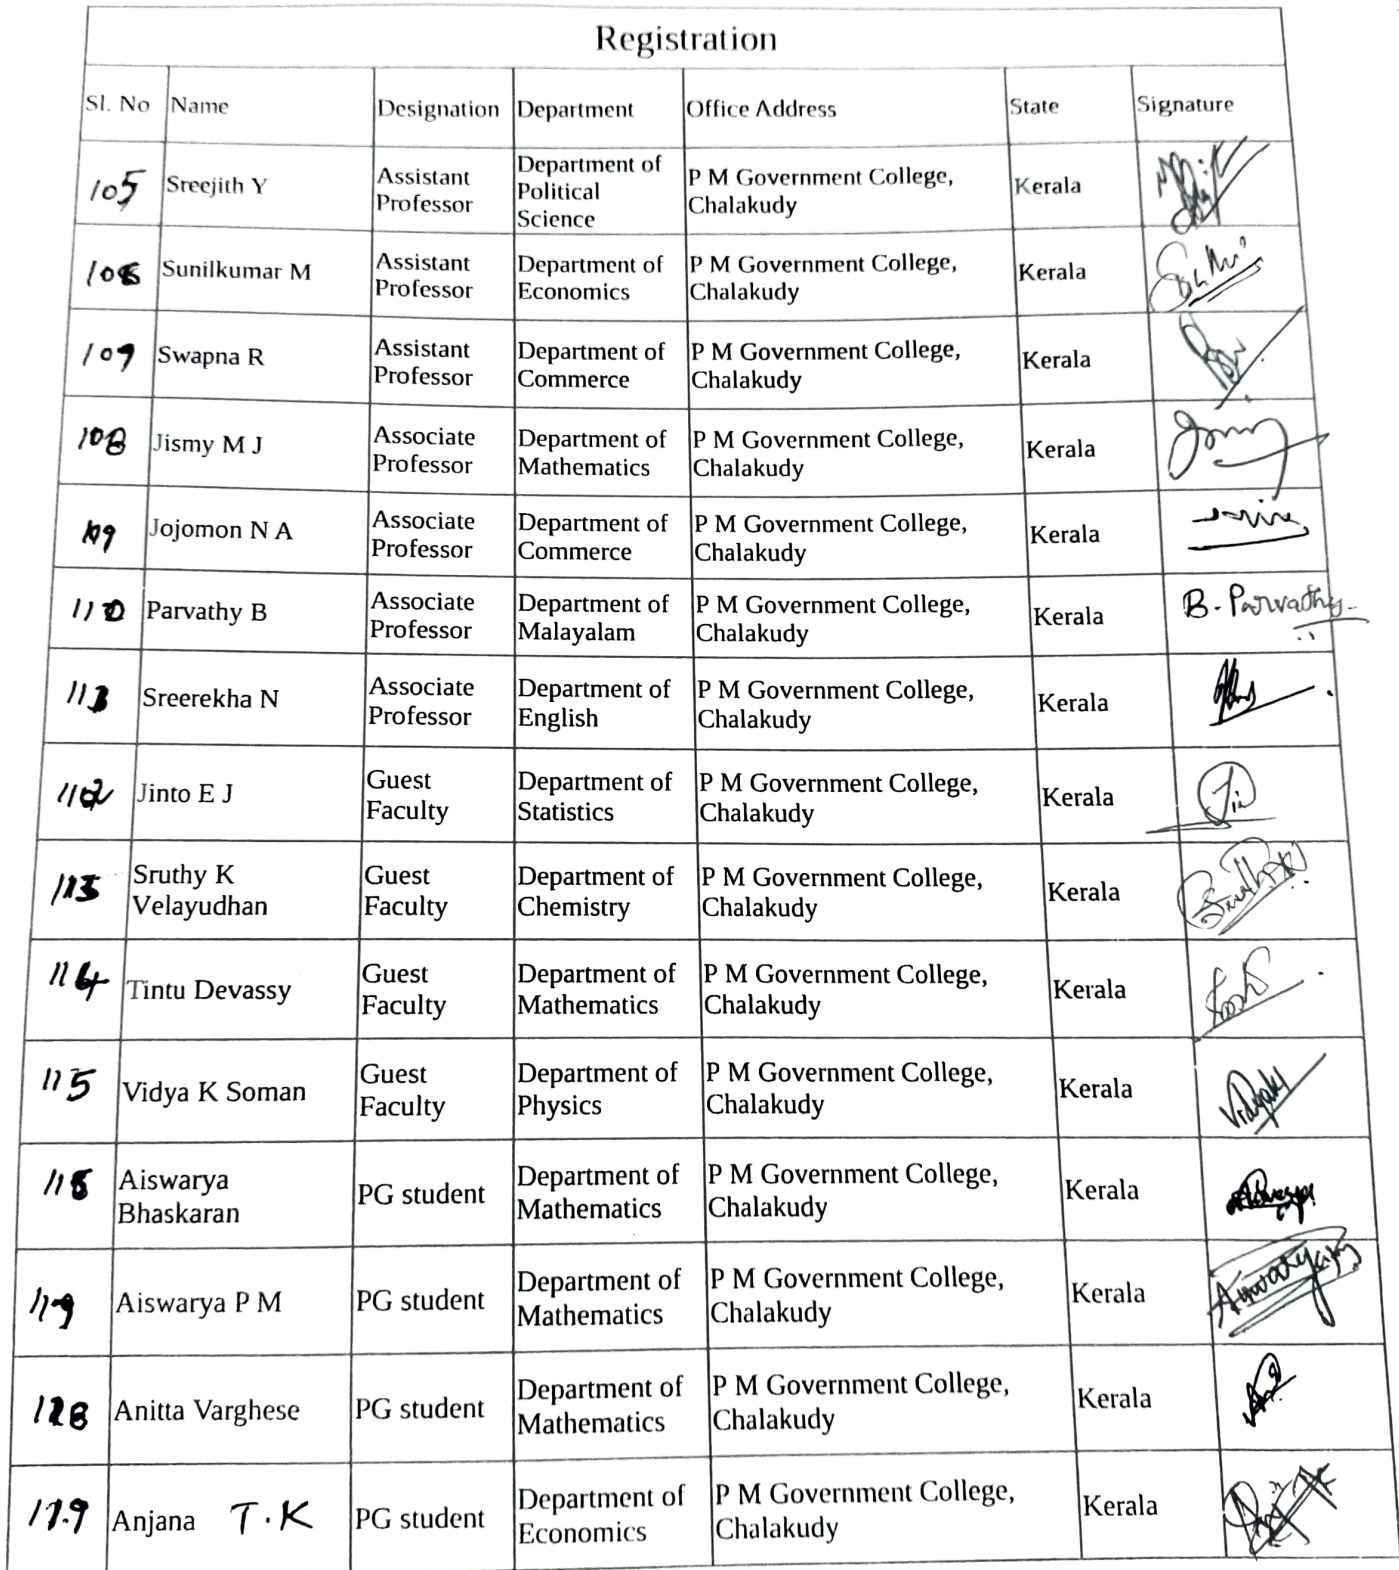 Registration
Sl. No Name Designation Department Office Address State Signature
105 Sreejith Y Assistant Professor Department of Political Science P M Government College, Chalakudy Kerala
Sunilkumar M Assistant Professor Department of Economics P M Government College, Chalakudy Kerala
109 Swapna R Assistant Professor Department of Commerce P M Government College, Chalakudy Kerala
108 Jismy M J Associate Professor Department of Mathematics P M Government College, Chalakudy Kerala
109 Jojomon N A Associate Professor Department of Commerce P M Government College, Chalakudy Kerala
110 Parvathy B Associate Professor Department of Malayalam P M Government College, Chalakudy Kerala B. Parvathy
Sreerekha N Associate Professor Department of English P M Government College, Chalakudy Kerala
112 Jinto E J Guest Faculty Department of Statistics P M Government College, Chalakudy Kerala
Sruthy K Velayudhan Guest Faculty Department of Chemistry P M Government College, Chalakudy Kerala
114 Tintu Devassy Guest Faculty Department of Mathematics P M Government College, Chalakudy Kerala
115 Vidya K Soman Guest Faculty Department of Physics P M Government College, Chalakudy Kerala
Aiswarya Bhaskaran PG student Department of Mathematics P M Government College, Chalakudy Kerala
Aiswarya P M PG student Department of Mathematics P M Government College, Chalakudy Kerala
Anitta Varghese PG student Department of Mathematics P M Government College, Chalakudy Kerala
Anjana T.K PG student Department of Economics P M Government College, Chalakudy Kerala